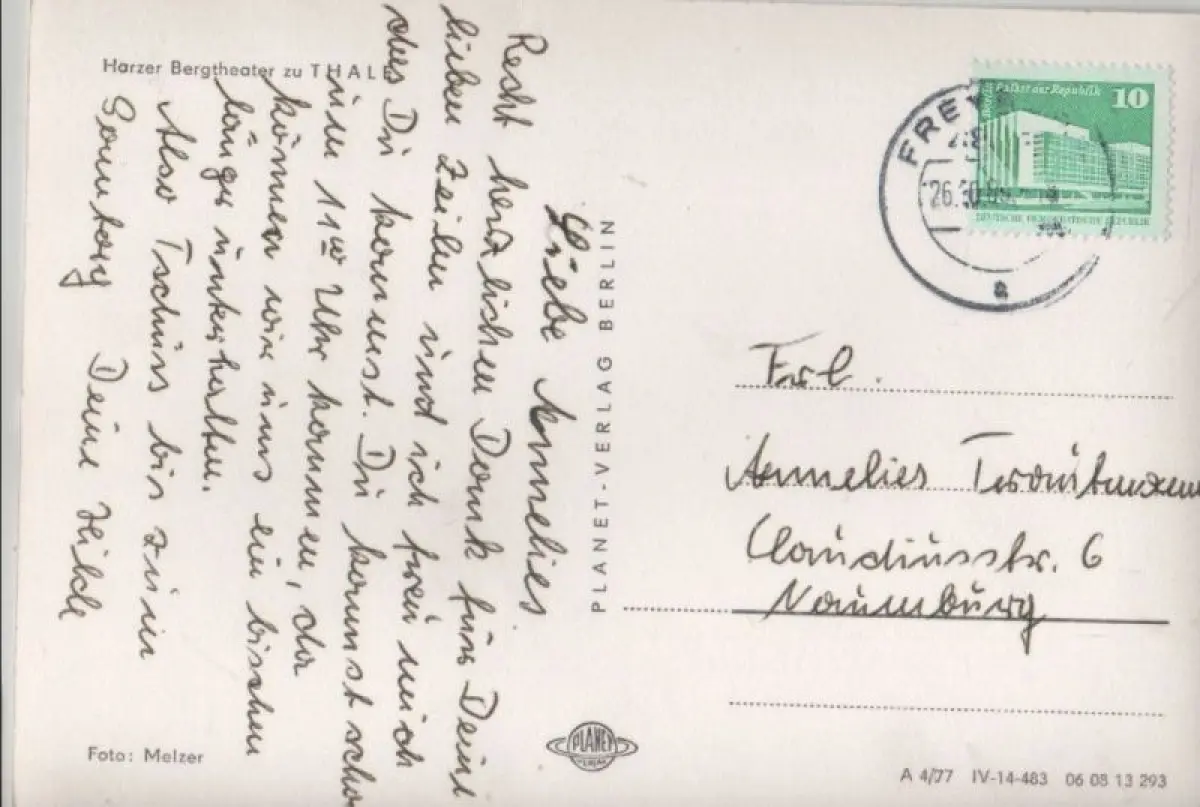 Harzer Bergtheater zu THAL
Liebe Annelies
Recht herzlichen Dank für Deine
lieben Zeilen und ich freu mich
das Du kommst. Du kannst scho
um 11 00 Uhr kommen, da
können wir uns ein bischen
länger unterhalten.
Also Tschüss bis zum
Sonntag Deine
Foto: Melzer
PLANET-VERLAG BERLIN
PLANET
VERLAG
Palast der Republik
10
DEUTSCHE DEMOKRATISCHE REPUBLIK
FREY
26.10
a
Frl.
Annelies Trautmann
Claudiusstr. 6
Naumburg
A 4/77 IV-14-483 06 08 13 293